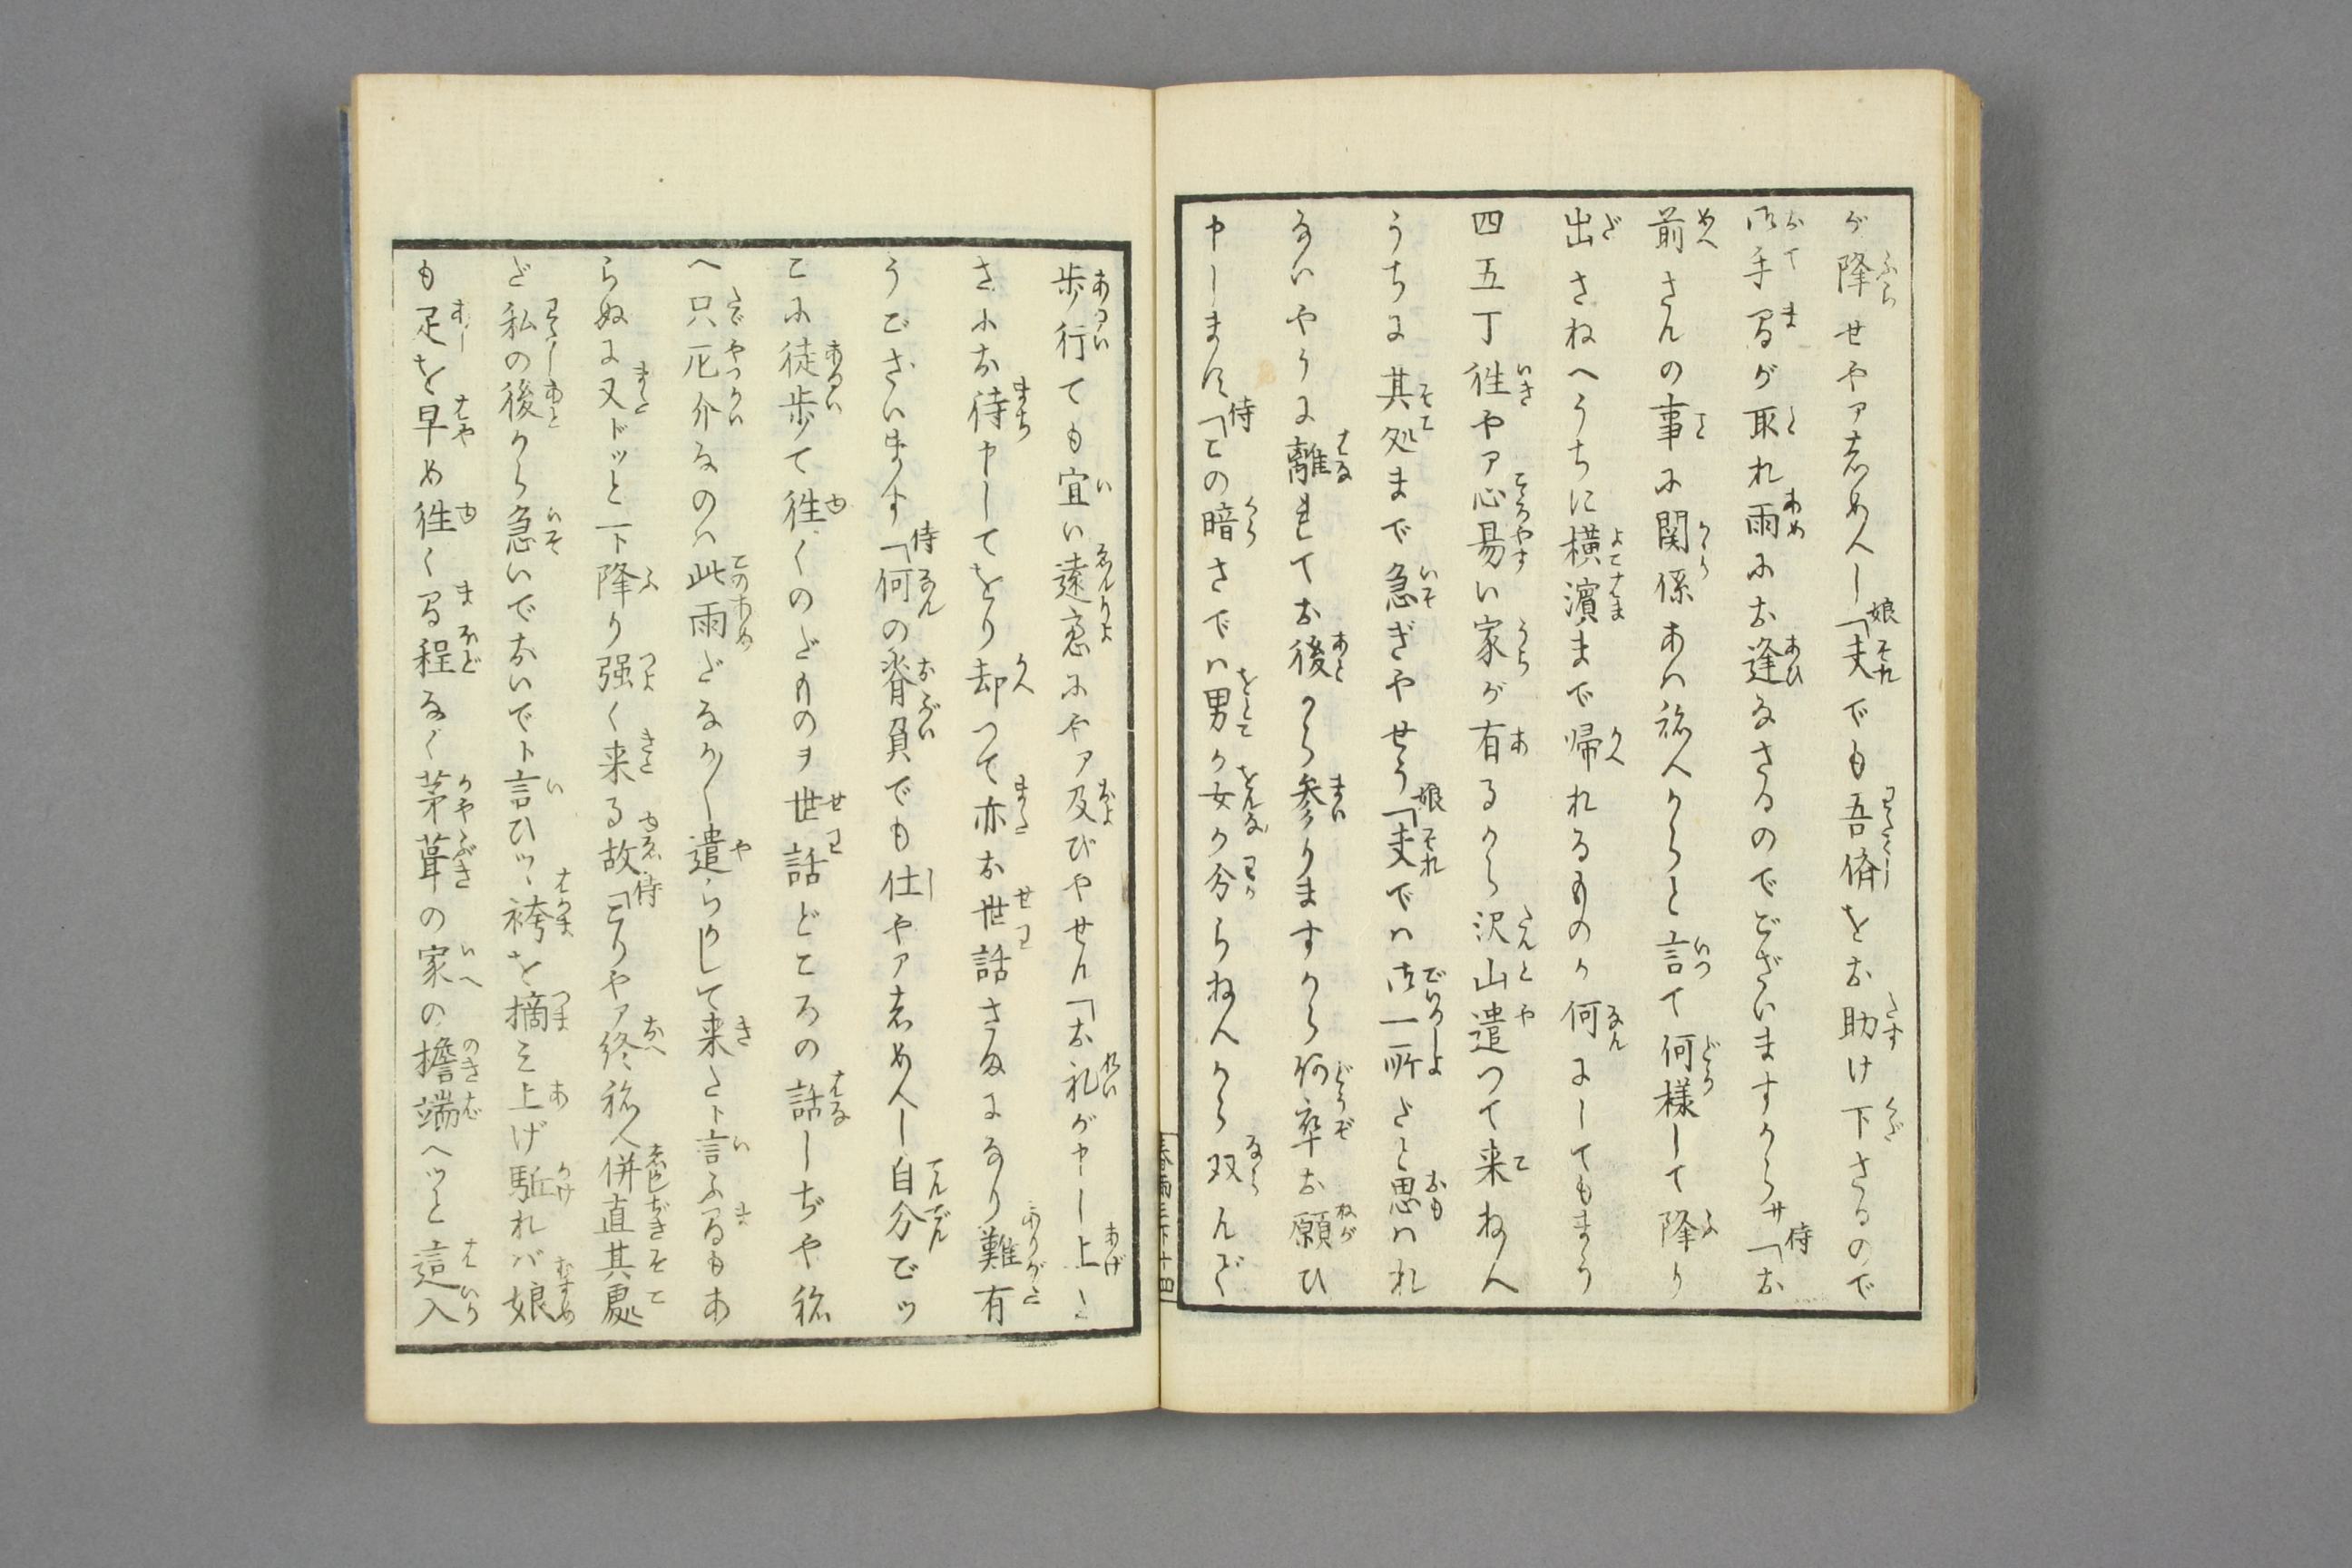 が降せやア志めへし娘「夫でも吾儕をお助け下さるので
御手間が取れ雨にお逢なさるのでございますからサ侍「お
前さんの事に関係あハ祢へからと言て何様して降り
出さねへうちに横濱まで帰れるものか何にしてもまう
四五丁徃やア心易い家が有るから沢山遣つて来ねへ
うちに其処まで急ぎやせう娘「夫でハ御一所だと思ハれ
ないやうに離れてお後から参りますから何卒お願ひ
申します侍「この暗さでハ男か女か分らねへから双んで
歩行ても宜い遠慮にやア及びやせん「お礼が申し上
さにお待申してをり却つて亦お世話さまになり難有
うございます侍「何の脊負でも仕やア志めへし自分でッ
こに徒歩て徃くのだものヲ世話どころの話しぢや祢
へ只厄介なのハ此雨だなかし遣らかして来たト言ふ間もあ
らぬに又ドッと一ト降り强く来る故侍「こりやア終祢へ併直其處
だ私の後から急いでおいでト言ひツヽ袴を摘み上げ駈れバ娘
も足を早め徃く間程なく茅葺の家の擔端へッと這入